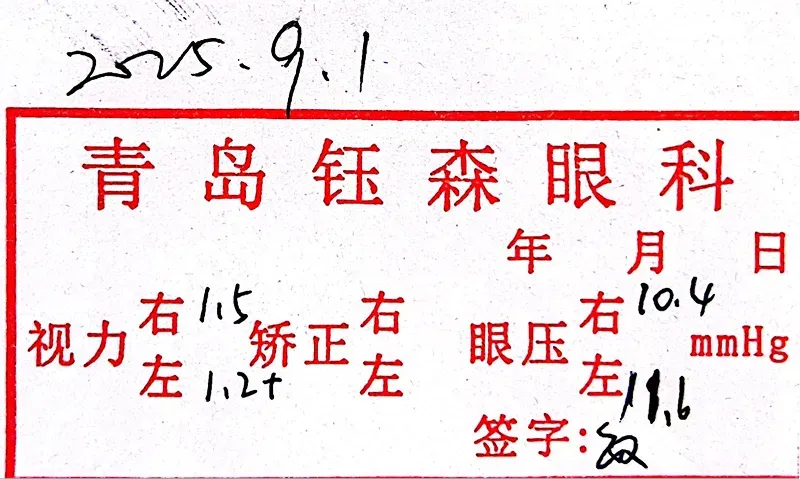 2025.9.1
青岛钰森眼科
年 月 日
视力 右 1.5 矫正 右 眼压 右 10.4 mmHg
左 1.2+ 左 左
签字: